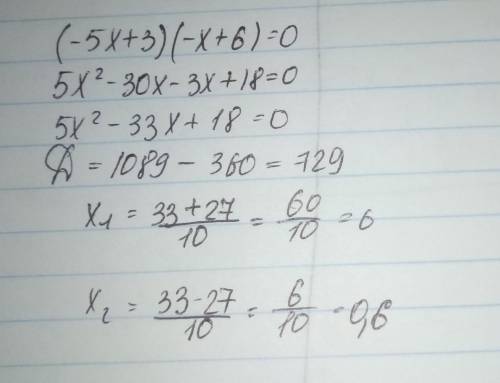 (-5x+3)(-x+6)=0
5x²-30x-3x+18=0
5x²-33x+18=0
D=1089-360=729
x₁ = 33+27/10 = 60/10 = 6
x₂ = 33-27/10 = 6/10 = 0,6